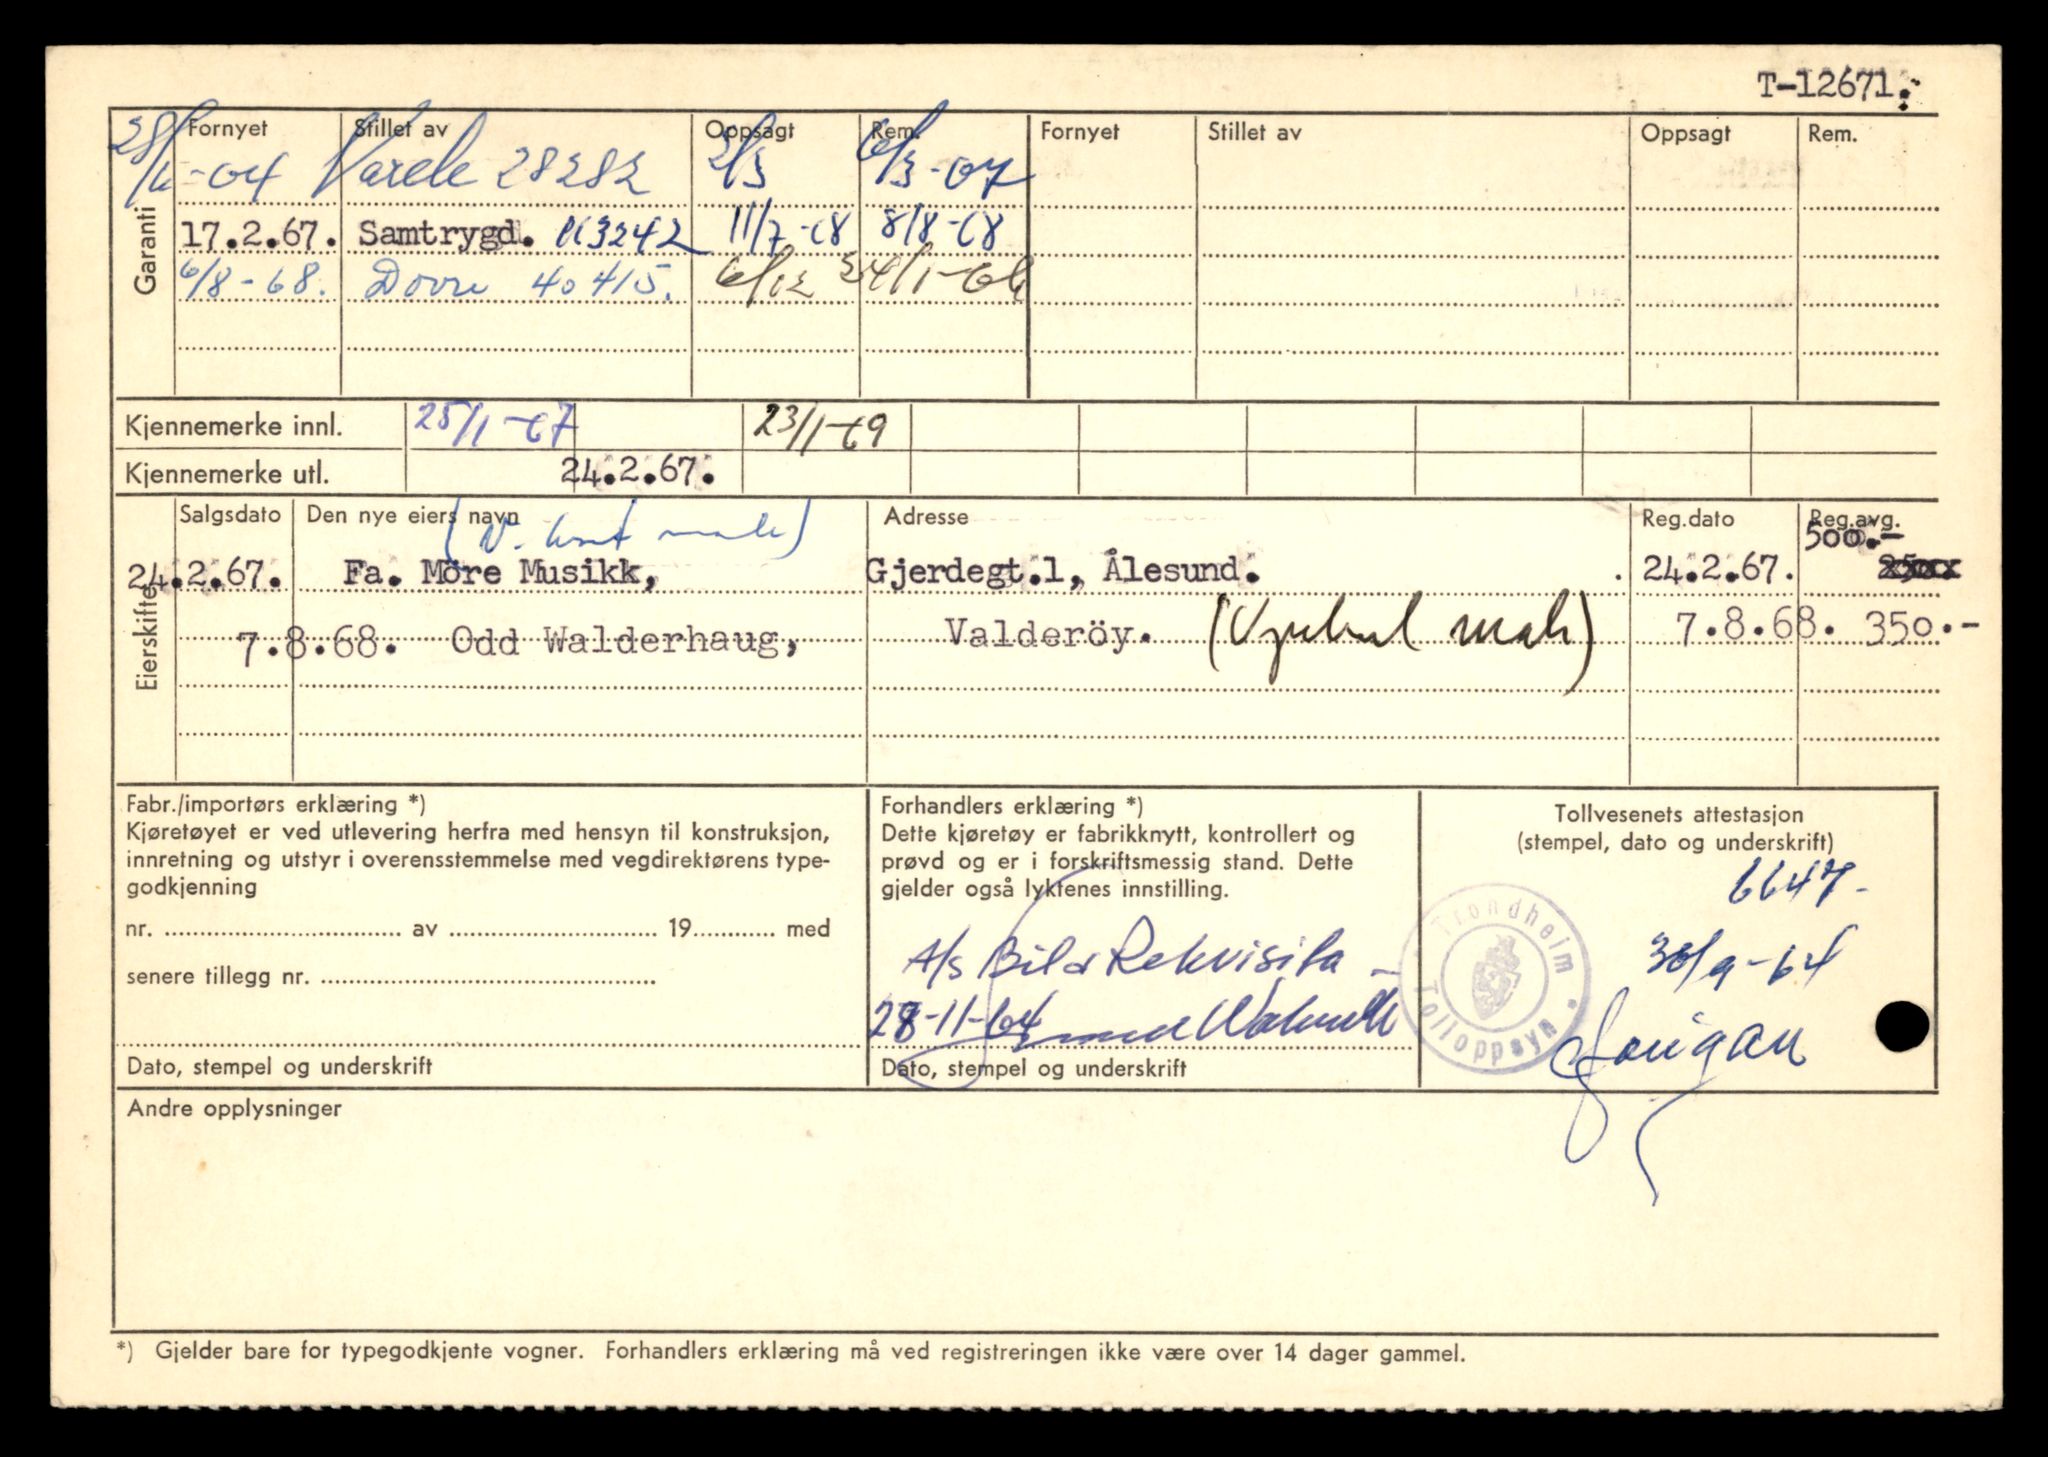 T-12671.
Garanti
Fornyet Stillet av Oppsagt Rem. Fornyet Stillet av Oppsagt Rem.
28282 2/3
17.2.67. Samtrygd. 11/7-68 8/8-68
6/8-68. Dovre 40415. 6/12
Kjennemerke innl. 25/1-67 23/1-69
Kjennemerke utl. 24.2.67.
Eierskifte
Salgsdato Den nye eiers navn Adresse Reg.dato Reg.avg.
500.-
24.2.67. Fa. Möre Musikk, Gjerdegt.1, Ålesund. 24.2.67.
7.8.68. Odd Walderhaug, Valderöy. 7.8.68. 350.-
Fabr./importørs erklæring *)
Kjøretøyet er ved utlevering herfra med hensyn til konstruksjon,
innretning og utstyr i overensstemmelse med vegdirektørens type-
godkjenning
nr. av 19 med
senere tillegg nr.
Dato, stempel og underskrift
Forhandlers erklæring *)
Dette kjøretøy er fabrikknytt, kontrollert og
prøvd og er i forskriftsmessig stand. Dette
gjelder også lyktenes innstilling.
A/s Bil & Rekvisita
28-11-64
Dato, stempel og underskrift
Tollvesenets attestasjon
(stempel, dato og underskrift)
6647-
30/9-64
Trondheim Tolloppsyn
Andre opplysninger
*) Gjelder bare for typegodkjente vogner. Forhandlers erklæring må ved registreringen ikke være over 14 dager gammel.